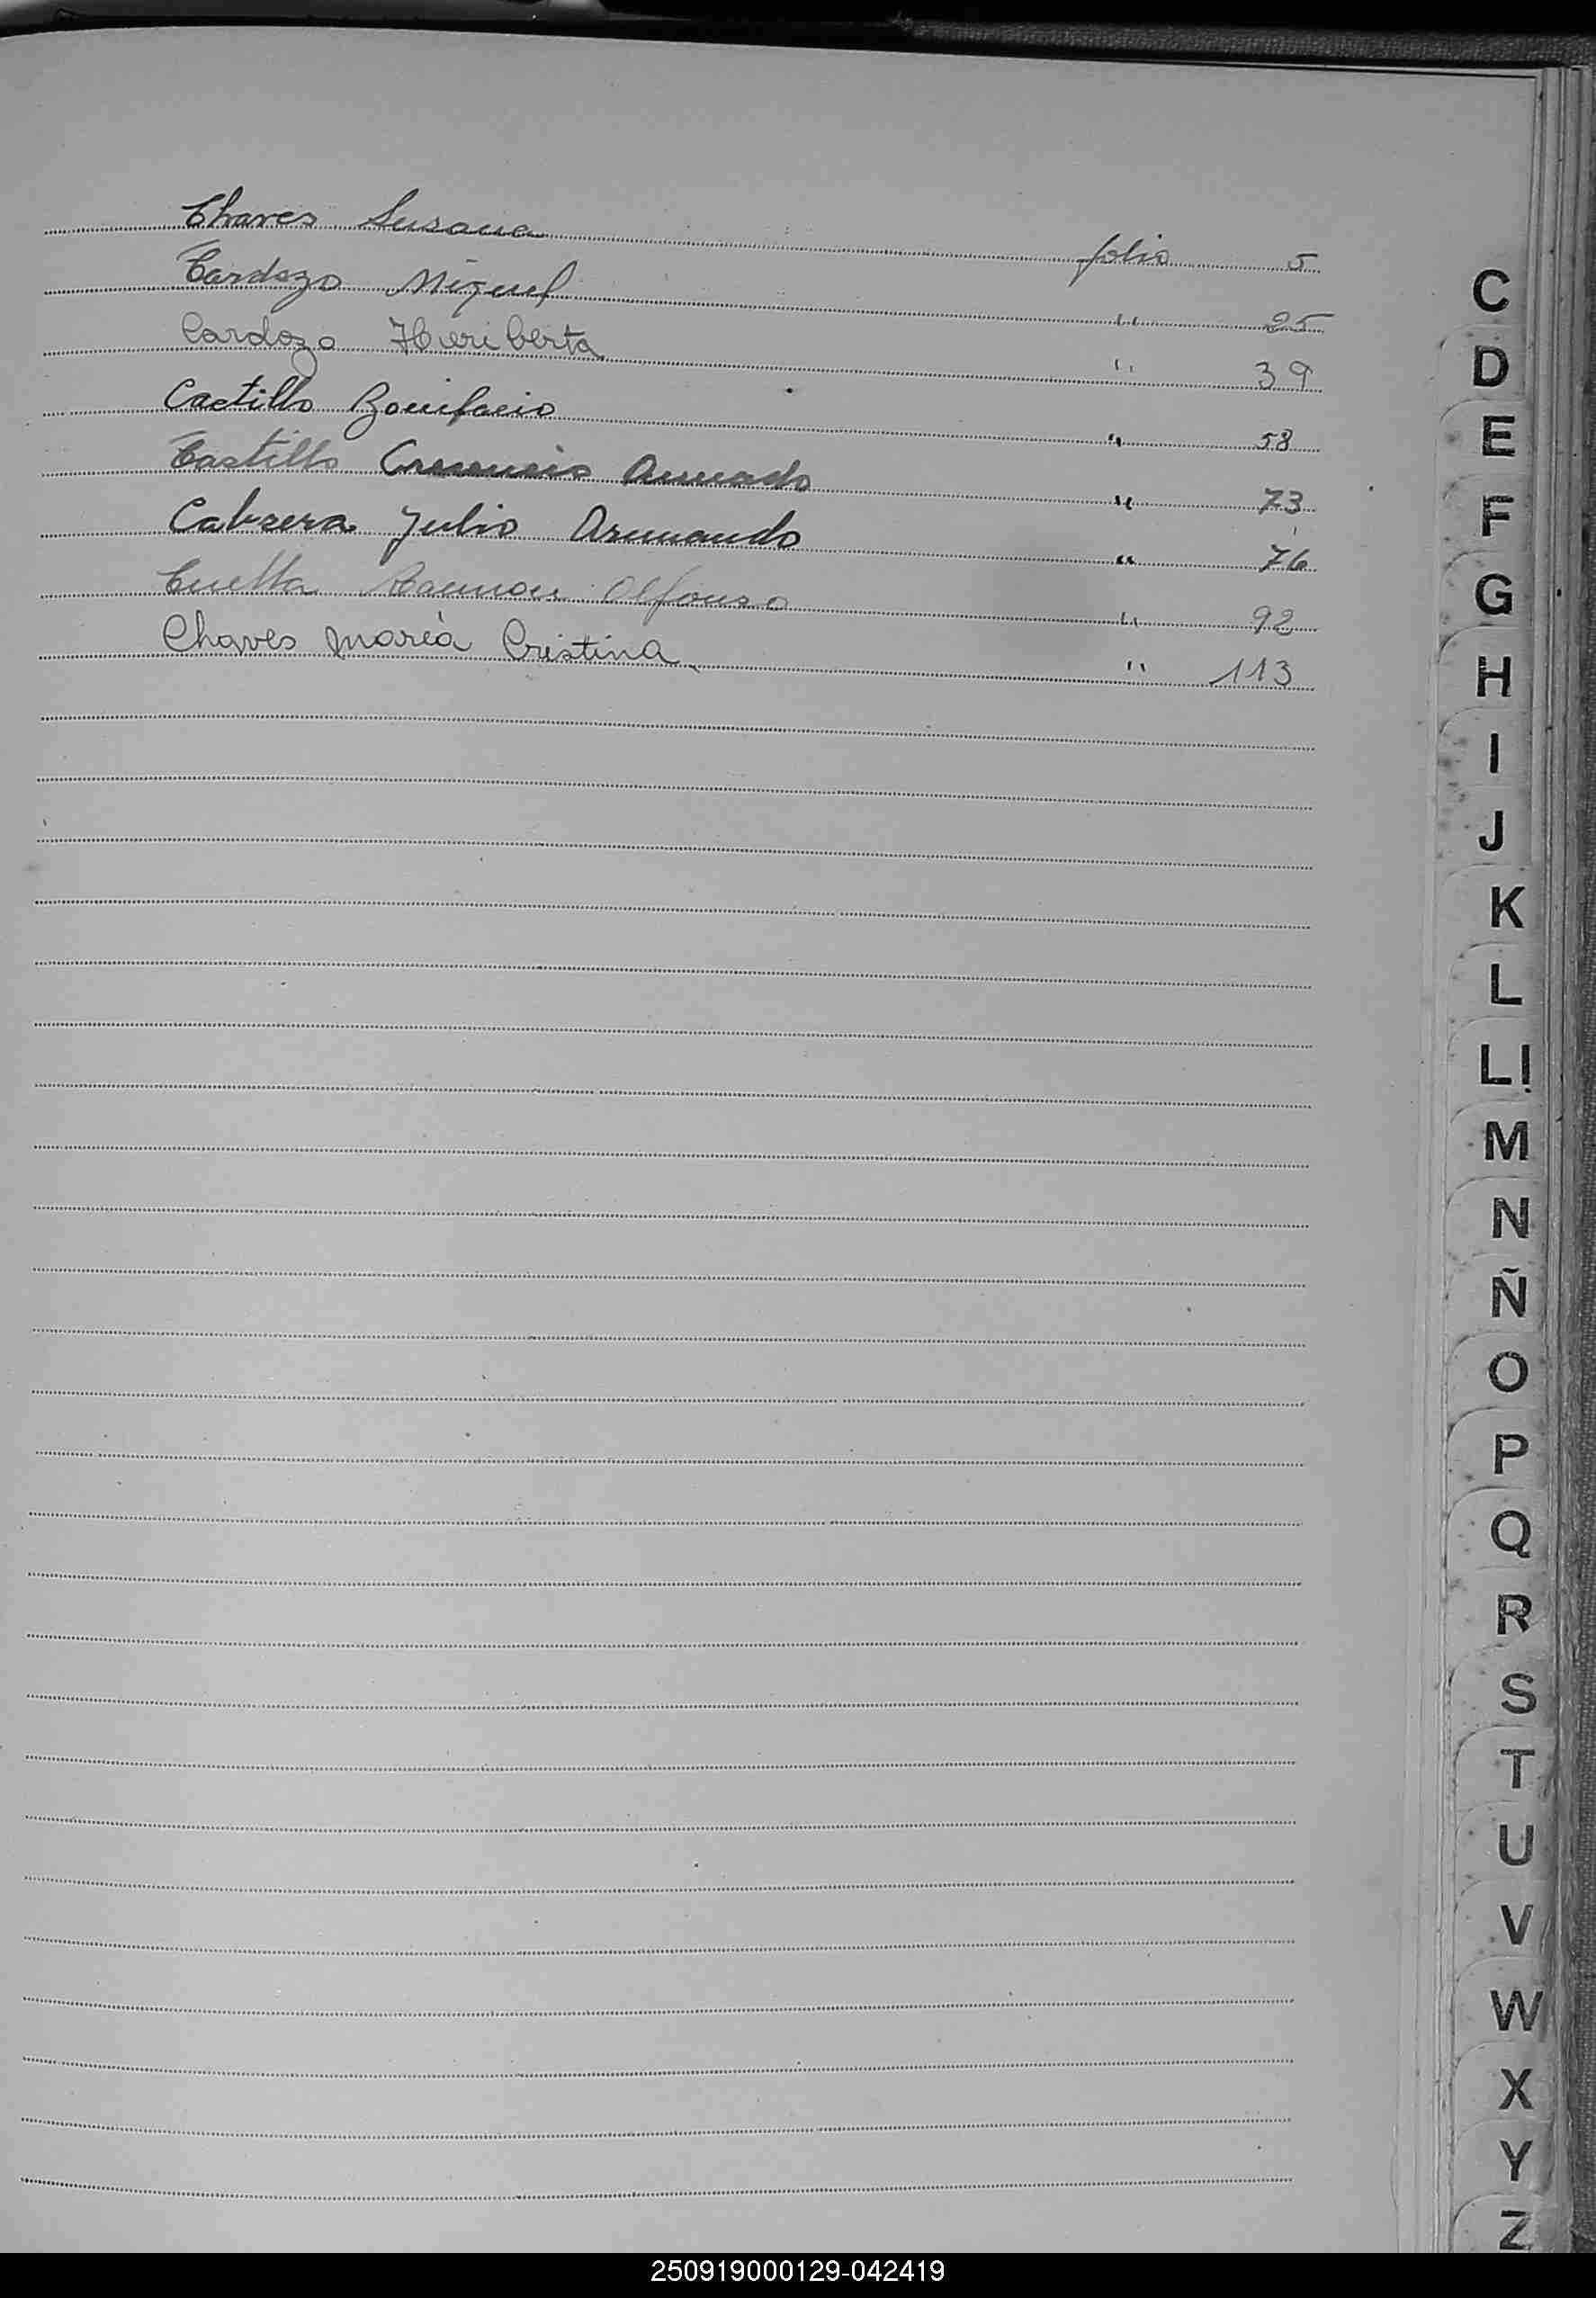 Chaves Susana folio 5
Cardozo Miguel " 25
Cardozo Heriberta " 39
Castillo Bonifacio " 58
Castillo Amado " 73
Cabrera Julio Armando " 76
Ramon Alfonso " 92
Chaves María Cristina " 113
C
D
E
F
G
H
I
J
K
L
LI
M
N
Ñ
O
P
Q
R
S
T
U
V
W
X
Y
Z
250919000129-042419